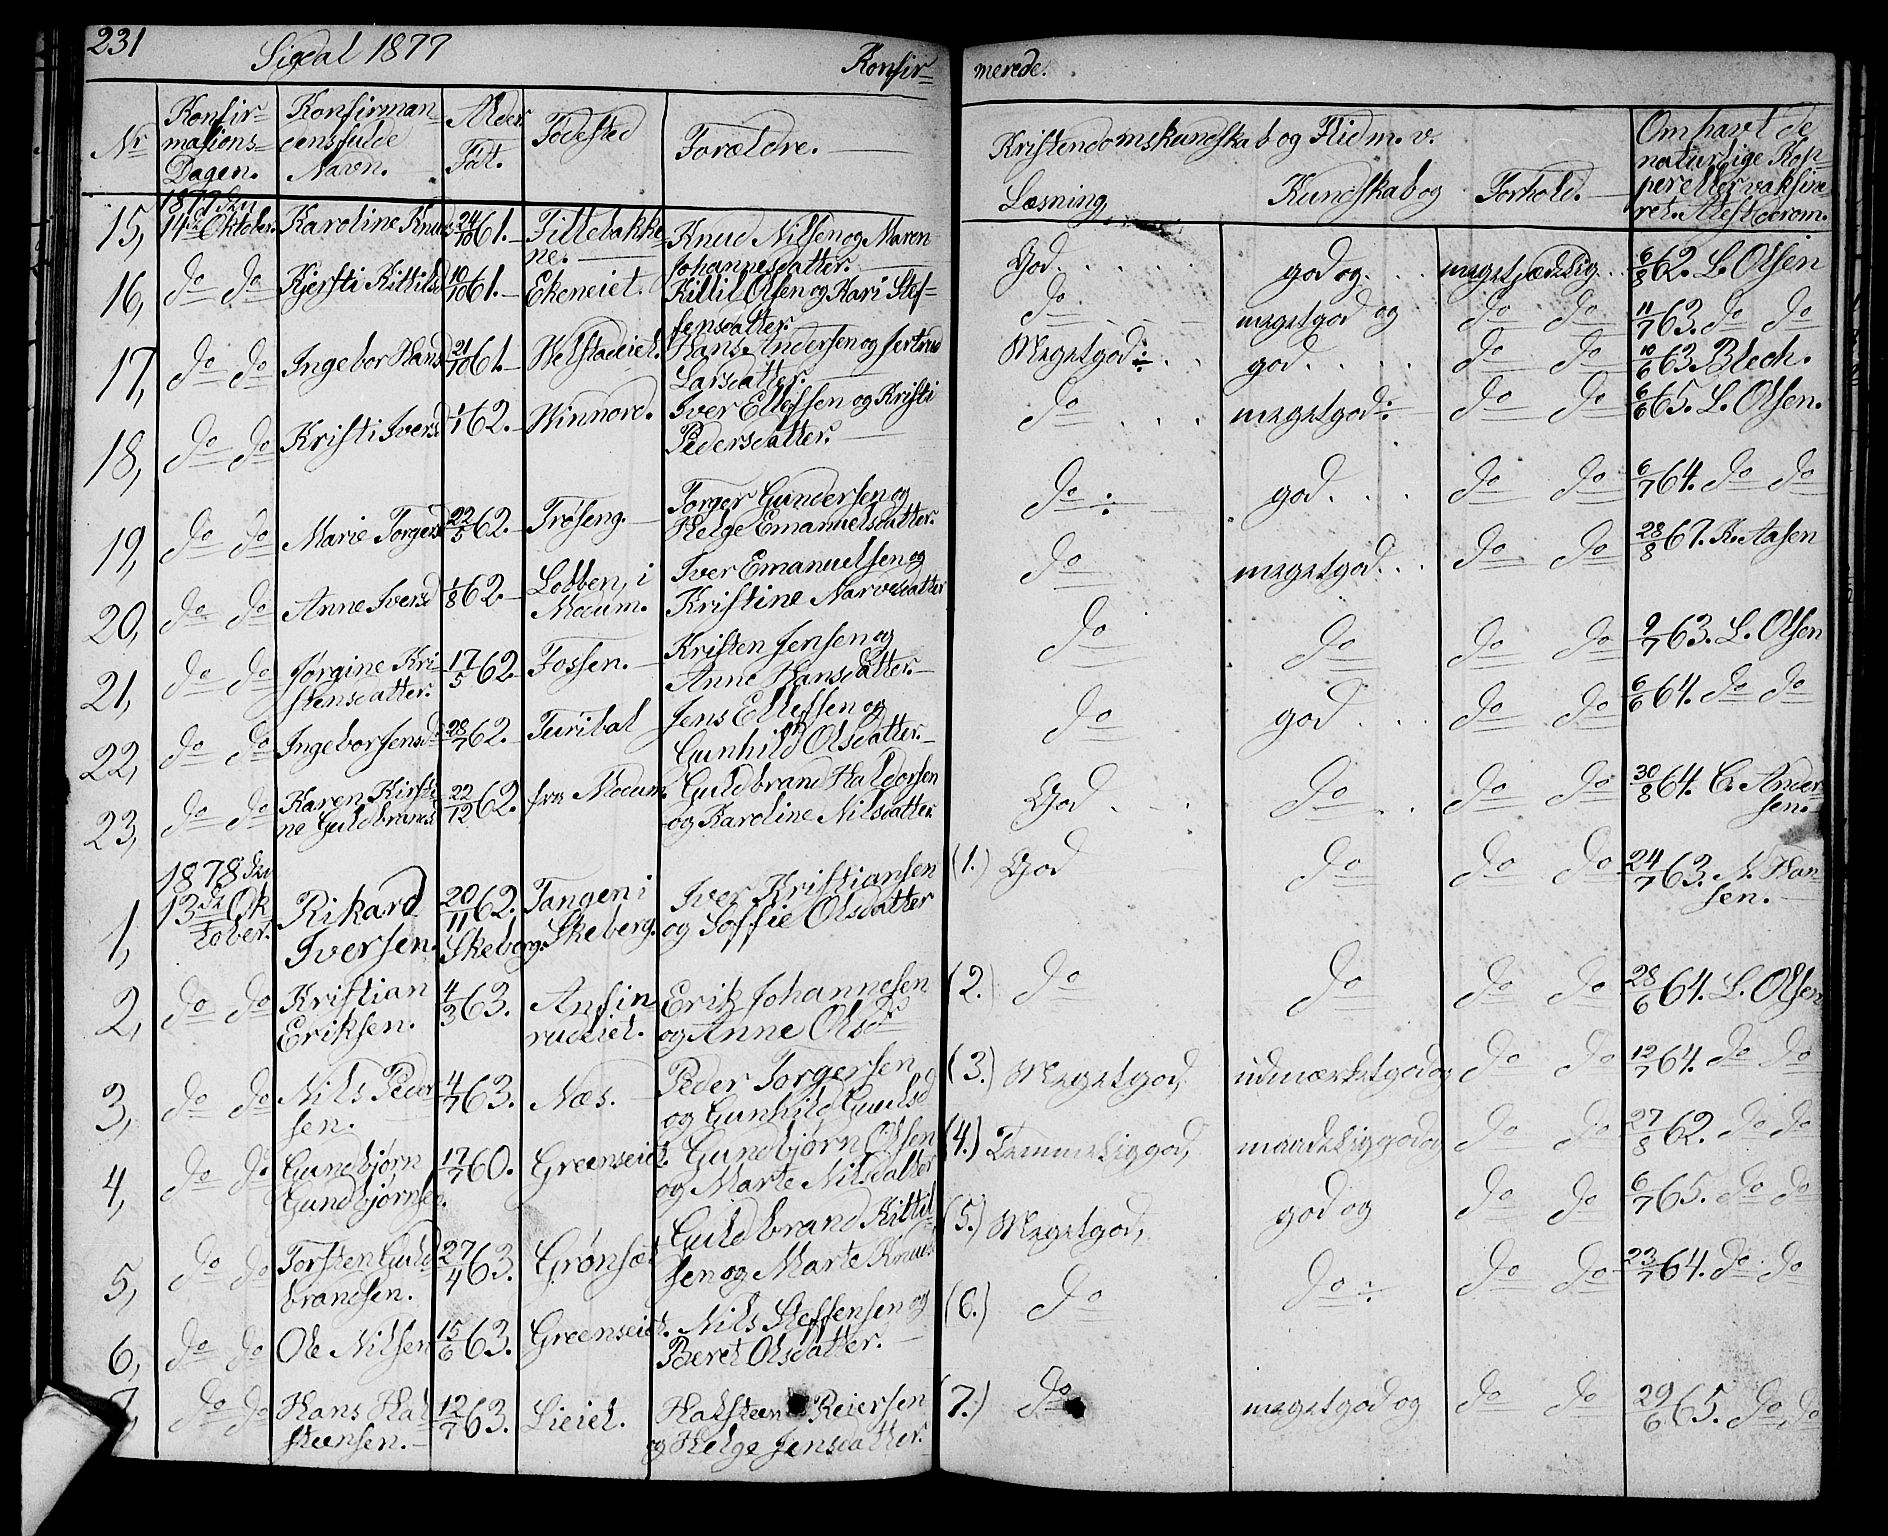 231 Sigdal 1877 Konfir-
merede.
Nr
Konfir-
mations-
Dagen.
Konfirman-
densfulde
Navn.
Alder
Føt.
Fødested
Forældre.
Kristendomskundskab og Flid m. v.
Læsning Kundskab og Forhold.
Om havt de
naturlige Kop-
per eller vaksine-
ret. Attest derom.
1877 den
15, 14de Oktober. Karoline Knuds 24/10 61. Tillebakke- Knud Nilsen og Maren
ne. Johannesdatter.
God god og megetsædelig 6/8 62. L. Olsen
16, do do Kjersti Kittilsd 10/10 61. Ekeneiet. Kittil Olsen og Kari Stef-
fensdatter.
do megetgod og do do 11/7 63. do do
17, do do Ingebor Hans 21/10 61. Helstadeiet. Hans Andersen og Jertrud
Larsdatter.
Megetgod: god do do 10/6 63. Blech.
18, do do Kristi Ivers 1/1 62. Winnord. Iver Ellefsen og Kristi
Pedersdatter.
do megetgod: do do 6/6 65. L. Olsen.
19, do do Marie Torgersd 22/5 62. Trøseng. Torger Gundersen og
Helge Emanuelsdatter.
do: god do do 6/7 64. do do
20, do do Anne Iversd 1/8 62. Lobben, i Iver Emanuelsen og
Modum. Kristine Narvesdatter
do megetgod do do 28/8 67. K. Aasen
21, do do Jørgine Kri- 17/5 62. Fossen. Kristen Jensen og
stensdatter. Anne Hansdatter.
do do do do 9/7 63. L. Olsen
22, do do Ingebor Jensd. 28/7 62. Turibal Jens Ellefsen og
Gunhild Olsdatter.
do god do do 6/6 64. do do
23, do do Karen Kirsti- 22/12 62. fra Modum. Guldbrand Haldorsen
ne Guldbrandsd og Karoline Nilsdatter.
God do do do 30/8 64. C. Ander-
sen.
1878 den
1, 13de Ok- Rikard 20/11 62. Tangen i Iver Kristiansen
tober. Iversen. Skeberg. Skeberg. og Soffie Olsdatter
(1.) God do do do 24/7 63. N. Han-
sen.
2, do do Kristian 4/3 63. Ansin- Erik Johannesen
Eriksen. rudeiet. og Anne Olsdr
(2.) do do do do 28/6 64. L. Olsen
3, do do Nils Peder- 4/7 63. Næs. Peder Torgersen
sen. og Gunhild Guulsd
(3.) Megetgod, udmærketgod og do do 12/7 64. do do
4, do do Gundbjørn 17/7 60. Greenseiet. Gundbjørn Olsen
Gundbjørnsen. og Marte Nilsdatter
(4.) Temmeliggod, maadeliggod og do do 27/8 62. do do
5, do do Torsten Guld- 27/4 63. Grønsæt Guldbrand Kittil-
brandsen. sen og Marte Knuds
(5.) Megetgod, god og do do 6/7 65. do do
6, do do Ole Nilsen 15/6 63. Greenseiet. Nils Steffensen og
Beret Olsdatter.
(6.) do do: do do 23/7 64. do do
7, do do Hans Hal- 12/7 63. Lieiet. Halsteen Reiersen
steensen. og Helge Jensdatter.
(7.) do megetgod og do do 29/6 65. do do